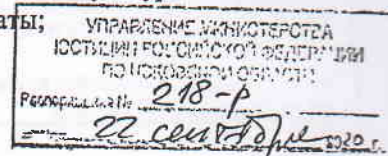 аты;
УПРАВЛЕНИЕ МИНИСТЕРСТВА
ЮСТИЦИИ РОССИЙСКОЙ ФЕДЕРАЦИИ
ПО ОБЛАСТИ
Распоряжение № 218-р
22 сентября 2020 г.